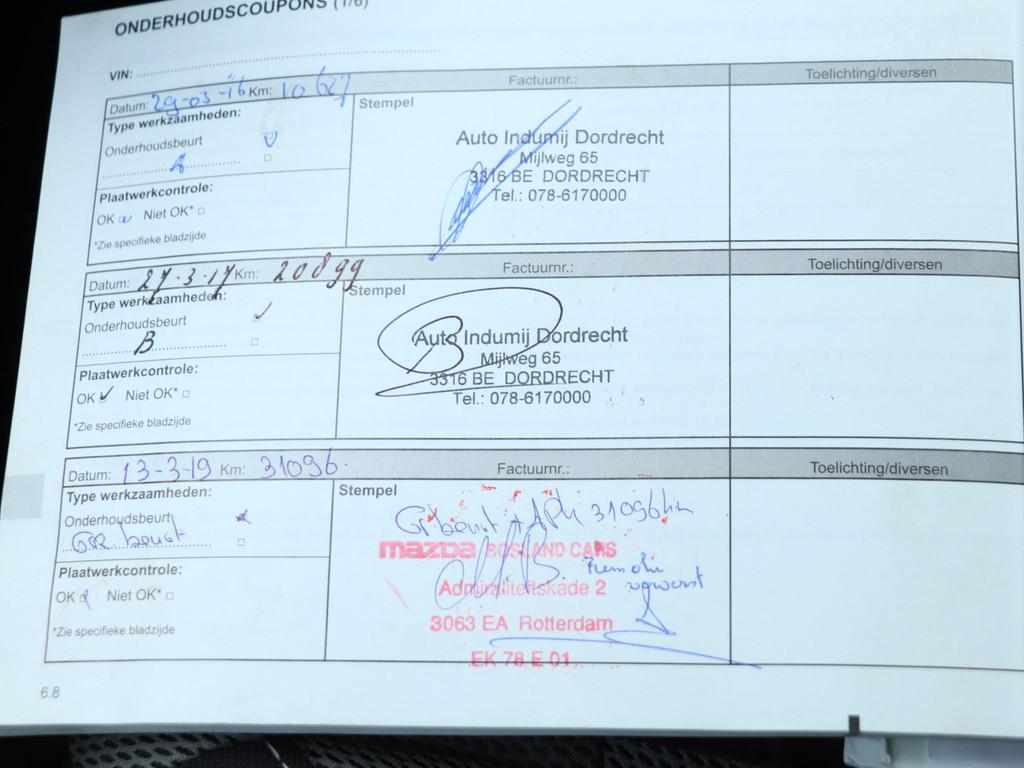 ONDERHOUDSCOUPONS (1/6)
VIN:
Datum: 29-03-16 Km: 10 627 Factuurnr.: Toelichting/diversen
Type werkzaamheden: Stempel
Onderhoudsbeurt
A
Auto Indumij Dordrecht
Mijlweg 65
3316 BE DORDRECHT
Tel.: 078-6170000
Plaatwerkcontrole:
OK Niet OK*
*Zie specifieke bladzijde
Datum: 27-3-17 Km: 20899 Factuurnr.: Toelichting/diversen
Type werkzaamheden: Stempel
Onderhoudsbeurt
B
Auto Indumij Dordrecht
Mijlweg 65
3316 BE DORDRECHT
Tel.: 078-6170000
Plaatwerkcontrole:
OK Niet OK*
*Zie specifieke bladzijde
Datum: 13-3-19 Km: 31096. Factuurnr.: Toelichting/diversen
Type werkzaamheden: Stempel
Onderhoudsbeurt
beurt
beurt + APK 31096km
mazda BOSLAND CARS
Admiraliteitskade 2
3063 EA Rotterdam
EK 78 E 01
Plaatwerkcontrole:
OK Niet OK*
*Zie specifieke bladzijde
6.8